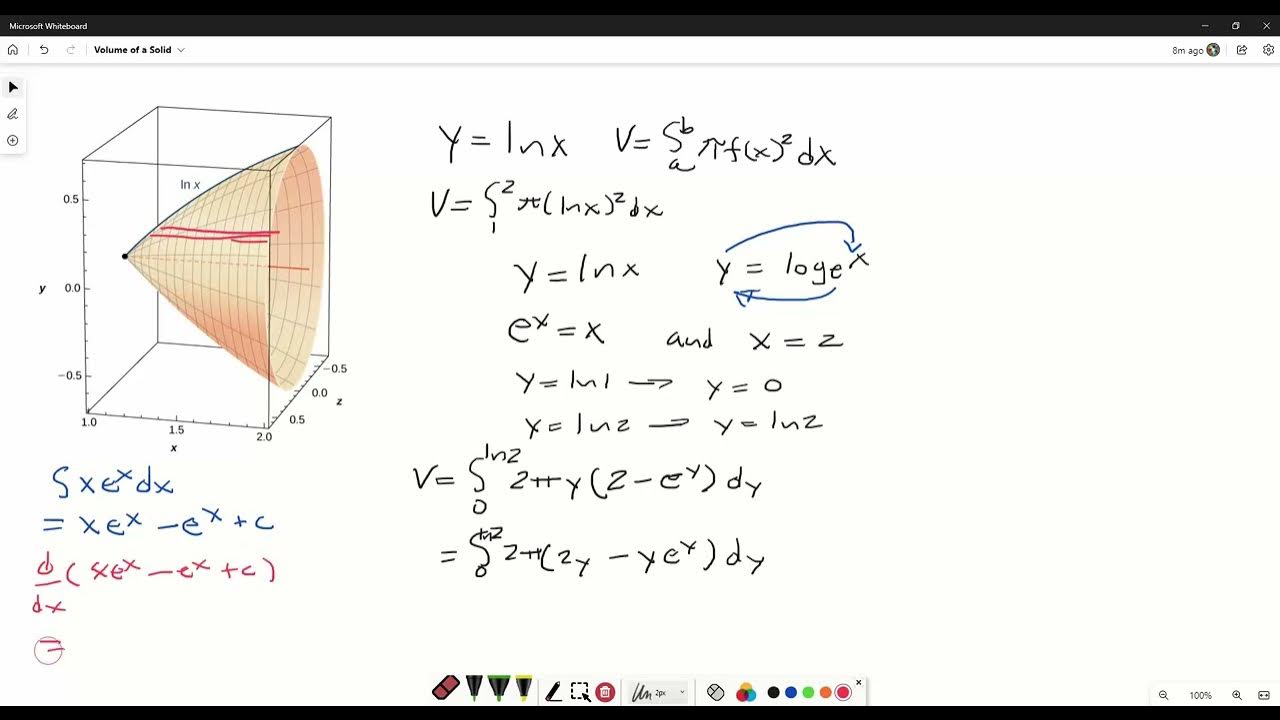 Microsoft Whiteboard
Volume of a Solid
8m ago
ln x
0.5
y 0.0
−0.5
1.0
1.5
2.0
x
−0.5
0.0
0.5
z
y = ln x V = ∫ₐᵇ πf(x)² dx
V = ∫₁² π(lnx)² dx
y = ln x y = logₑ x
eˣ = x and x = 2
y = ln1 → y = 0
x = ln2 → y = ln2
V = ∫₀^ln2 2πy(2 − eʸ) dy
= ∫₀^ln2 2π(2y − yeʸ) dy
∫xeˣdx
= xeˣ − eˣ + c
d/dx (xeˣ − eˣ + c)
=
2px
100%